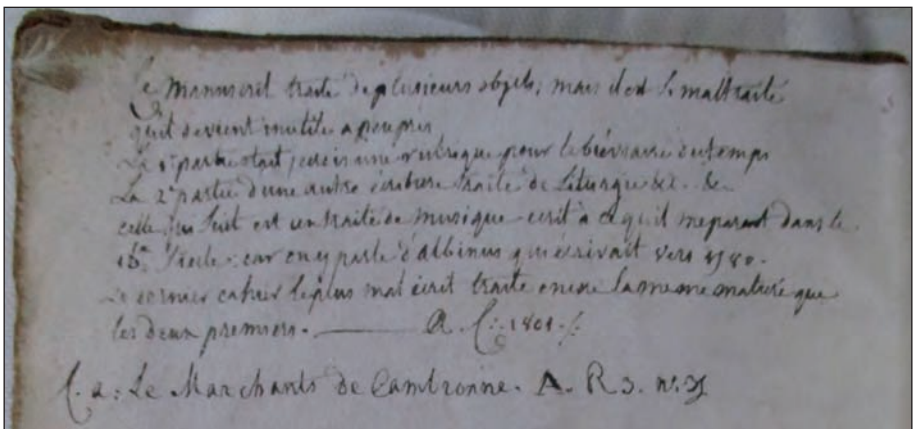 Ce manuscrit traite de plusieurs objets, mais il est si maltraité
qu'il devient inutile a peu pres
La 1e partie etait, je crois une rubrique pour le bréviaire du temps
La 2e partie d'une autre écriture traite de Liturgie &c. &c
celle qui suit est un traité de musique écrit à ce qu'il me parait dans le
siecle: car on y parle d'albinus qui écrivait vers
Le dernier cahier le plus mal écrit traite encore la meme matiere que
les deux premiers. ——— 1801
a: Le Marchants de Cambronne. A. R 3. n°.